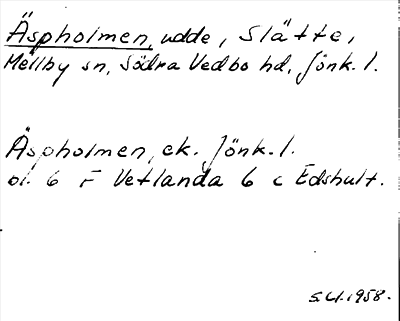 Äspholmen, udde, Slätte,
Mellby sn, Södra Vedbo hd, Jönk. l.
Äspholmen, ek. Jönk. l.
bl. 6 F Vetlanda 6 c Edshult.
S.U. 1958.